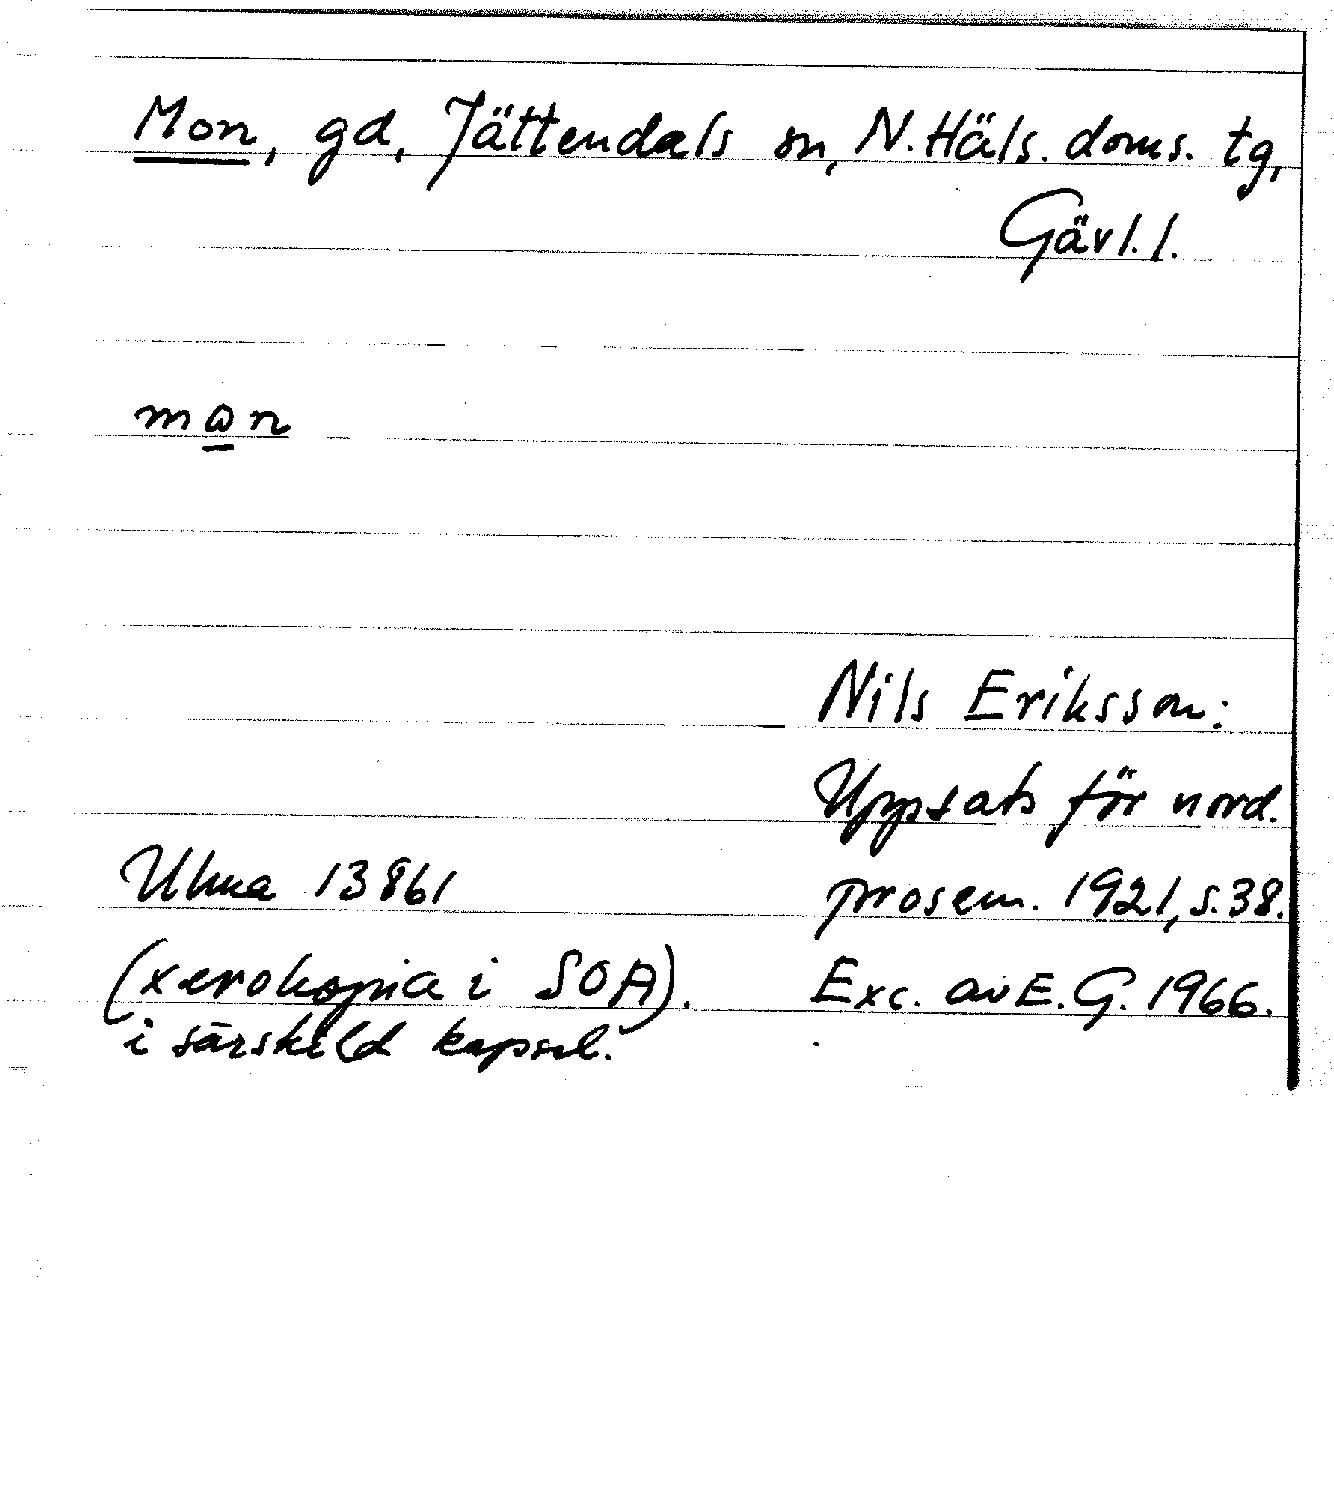 Mon, gd, Jättendals sn, N. Häls. doms. tg,
Gävl. l.
mɷ̠n
Nils Eriksson:
Uppsats för nord.
prosem. 1921, s. 38.
Exc. av E. G. 1966.
Ulma 13861
(xerokopia i SOA).
i särskild kapsel.